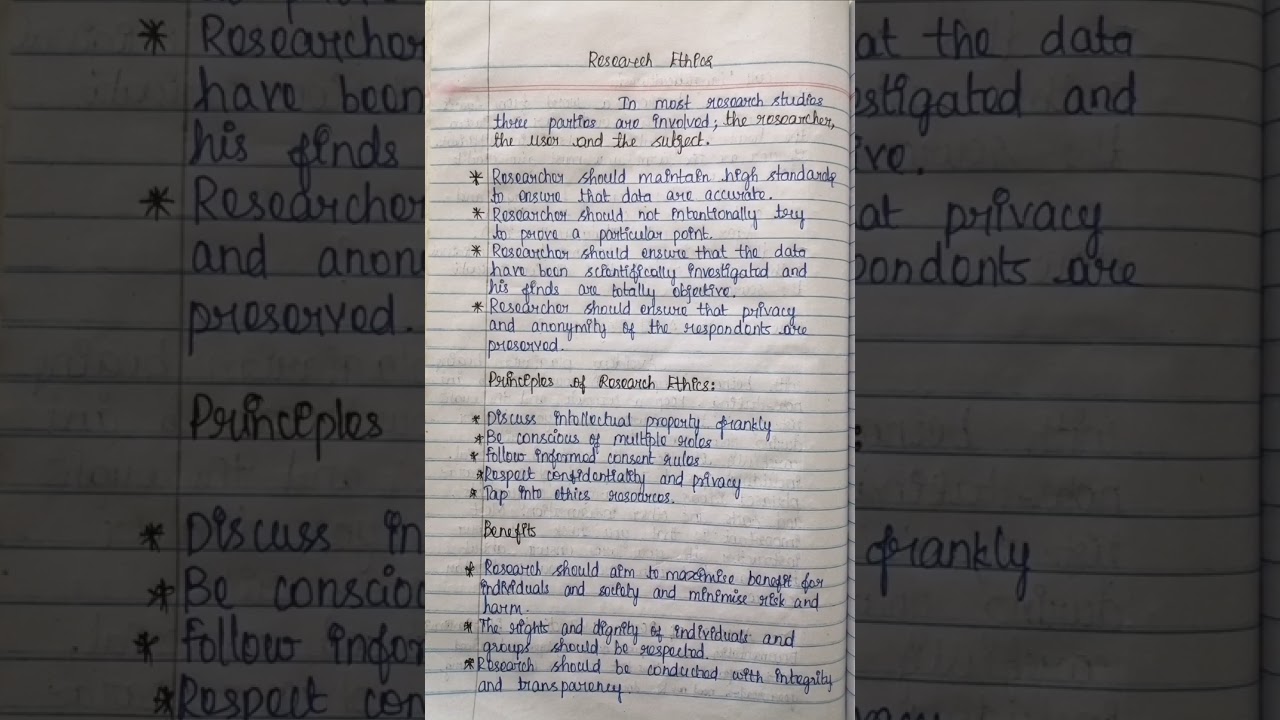 Research Ethics
In most research studies
three parties are involved; the researcher,
the user and the subject.
* Researcher should maintain high standards
to ensure that data are accurate.
* Researcher should not intentionally try
to prove a particular point.
* Researcher should ensure that the data
have been scientifically investigated and
his finds are totally objective.
* Researcher should ensure that privacy
and anonymity of the respondents are
preserved.
Principles of Research Ethics:
* Discuss intellectual property frankly
* Be conscious of multiple roles
* Follow informed consent rules
* Respect confidentiality and privacy
* Tap into ethics resources.
Benefits
* Research should aim to maximise benefit for
individuals and society and minimise risk and
harm.
* The rights and dignity of individuals and
groups should be respected.
* Research should be conducted with integrity
and transparency